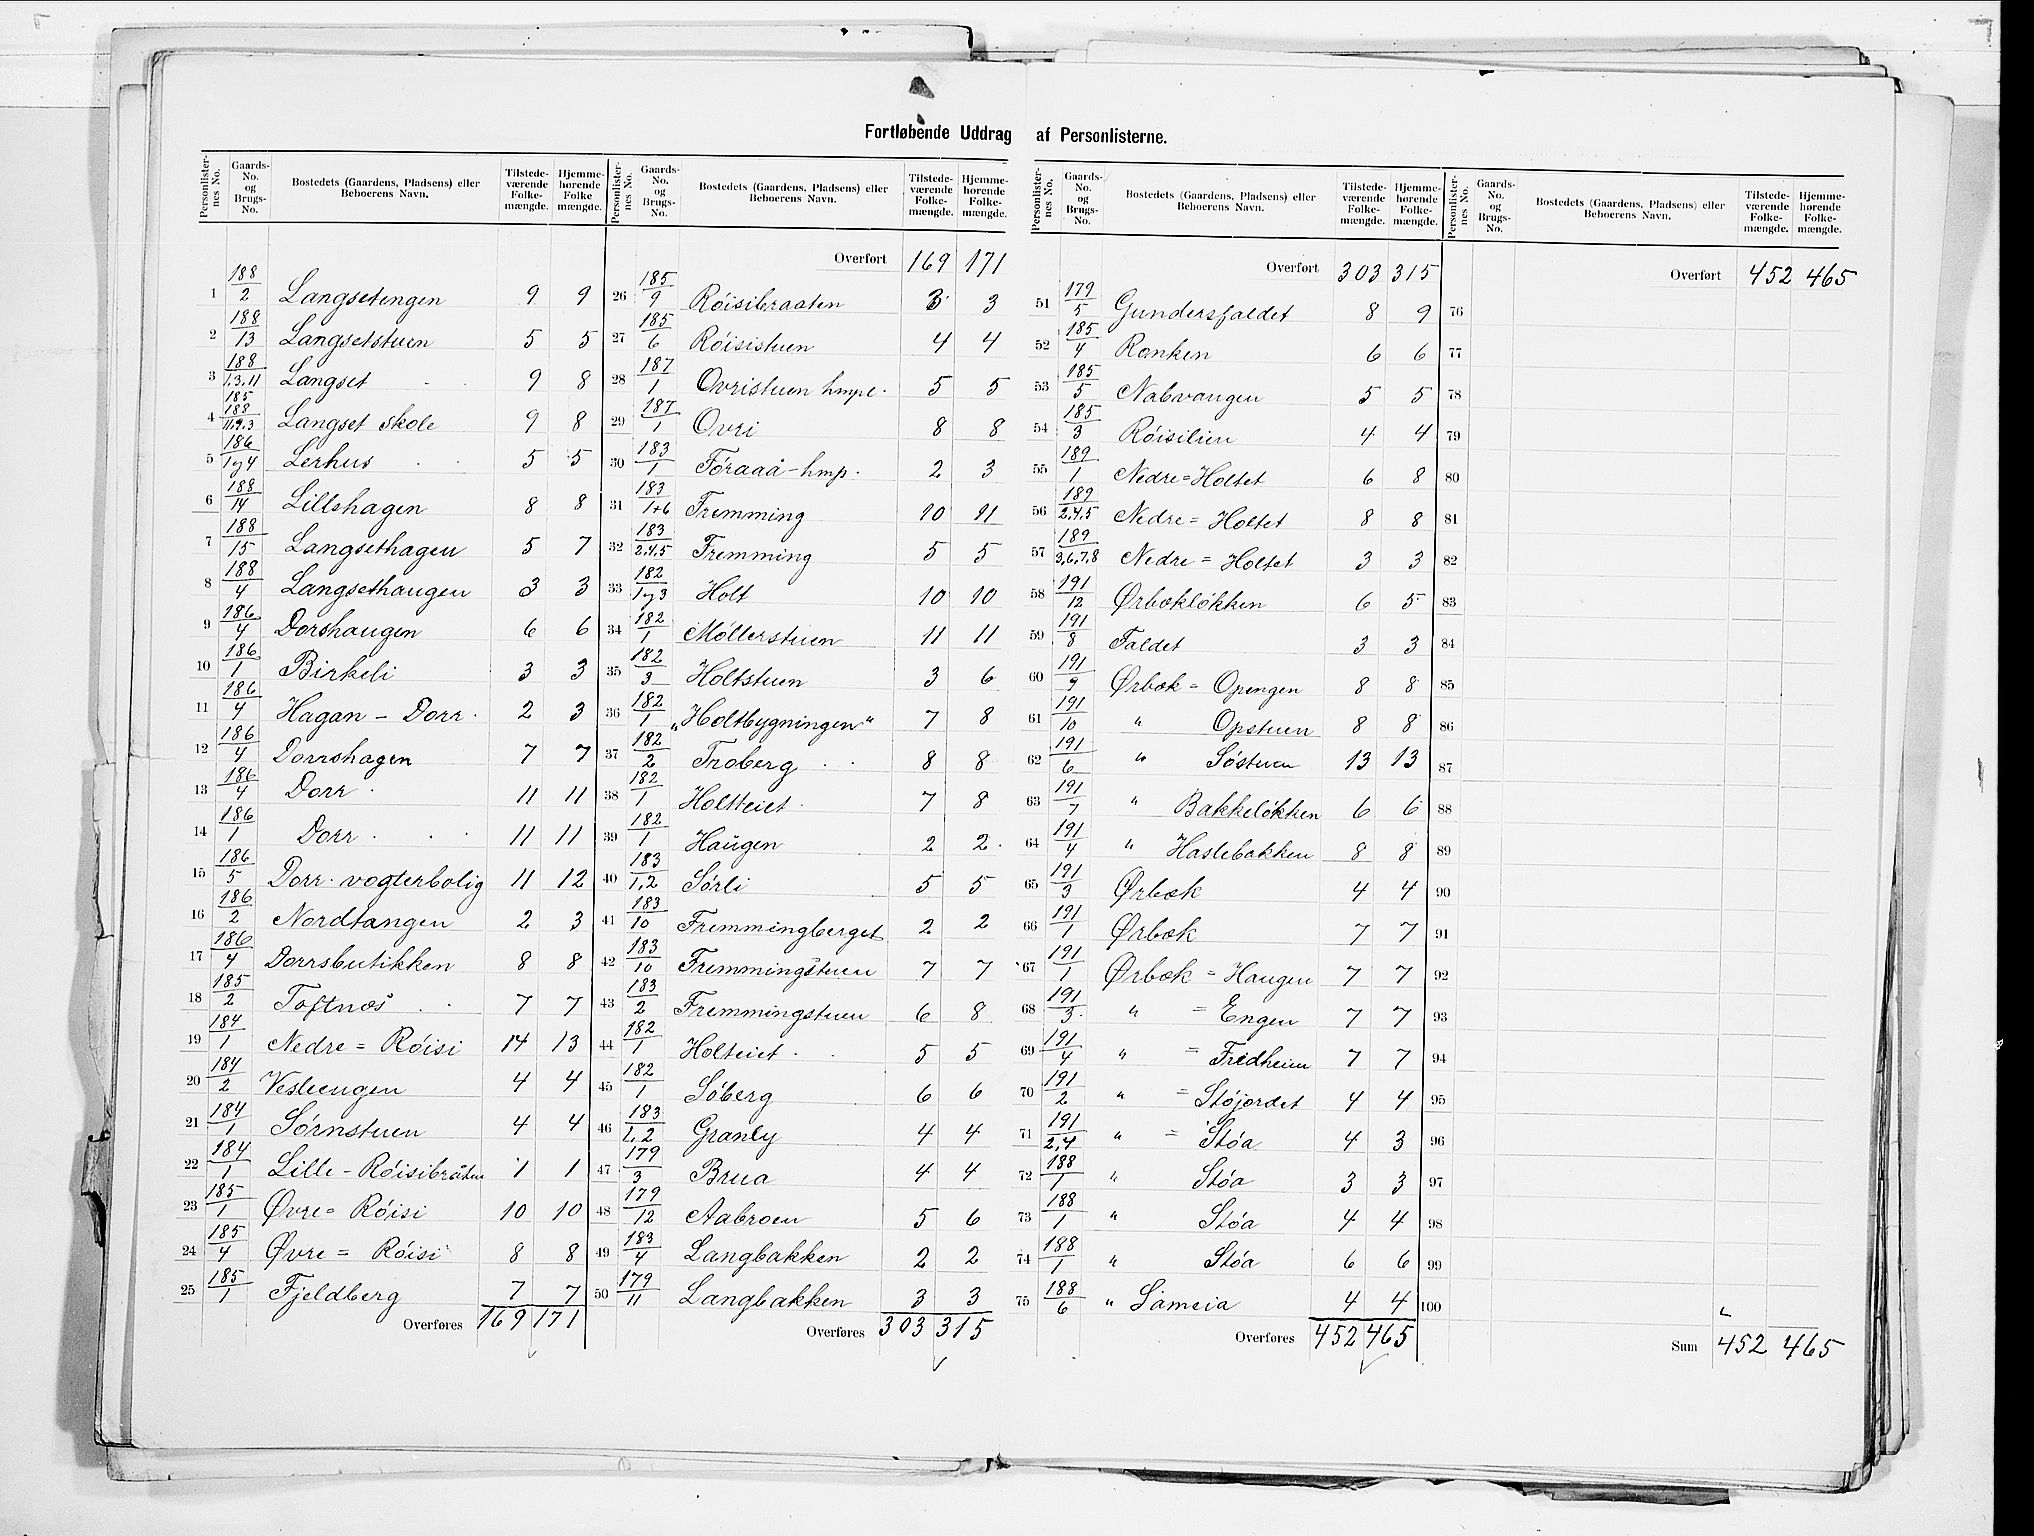 Fortløbende Uddrag af Personlisterne.
Personlisternes No. | Gaards-No. og Brugs-No. | Bostedets (Gaardens, Pladsens) eller Beboerens Navn. | Tilstedeværende Folkemængde. | Hjemmehørende Folkemængde.
1 188/2 Langsetengen 9 9
2 188/13 Langsetstuen 5 5
3 188/1.3.11 Langset 9 8
4 185 188/11.9.3 Langset skole 9 8
5 186/1 og 4 Lerhus 5 5
6 188/14 Lillehagen 8 8
7 188/15 Langsethagen 5 7
8 188/4 Langsethaugen 3 3
9 186/4 Dorshaugen 6 6
10 186/1 Birkeli 3 3
11 186/4 Hagan - Dorr 2 3
12 186/4 Dorrshagen 7 7
13 186/4 Dorr 11 11
14 186/1 Dorr 11 11
15 186/5 Dorr vogterbolig 11 12
16 186/2 Nordtangen 2 3
17 186/4 Dorrsbutikken 8 8
18 185/2 Toftnæs 7 7
19 184/1 Nedre = Röisi 14 13
20 184/2 Vesleengen 4 4
21 184/1 Sörnstuen 4 4
22 184/1 Lille - Röisibråten 1 1
23 185/1 Øvre = Röisi 10 10
24 185/4 Øvre = Röisi 8 8
25 185/1 Fjeldberg 7 7
Overføres 169 171
Overført 169 171
26 185/9 Röisibraaten 3 3
27 185/6 Röisistuen 4 4
28 187/1 Ovristuen hmpl. 5 5
29 187/1 Ovri 8 8
30 183/1 Föraaå - hmp. 2 3
31 183/1+6 Fremming 10 11
32 183/2.4.5 Fremming 5 5
33 182/1 og 3 Holt 10 10
34 182/1 Möllerstuen 11 11
35 182/3 Holtstuen 3 6
36 182/1 „Holtbygningen" 7 8
37 182/2 Troberg 8 8
38 182/1 Holtteiet 7 8
39 182/1 Haugen 2 2
40 183/1,2 Sörli 5 5
41 183/10 Fremmingberget 2 2
42 183/10 Fremmingstuen 7 7
43 183/2 Fremmingstuen 6 8
44 182/1 Holteiet 5 5
45 182/1 Söberg 6 6
46 183/1,2 Granly 4 4
47 179/3 Brua 4 4
48 179/12 Aabroen 5 6
49 183/4 Langbakken 2 2
50 179/11 Langbakken 3 3
Overføres 303 315
Overført 303 315
51 179/5 Gundersfaldet 8 9
52 185/4 Ranken 6 6
53 185/5 Nabvangen 5 5
54 185/3 Röisilien 4 4
55 189/1 Nedre = Holtet 6 8
56 189/2.4.5 Nedre = Holtet 8 8
57 189/3,6,7,8 Nedre = Holtet 3 3
58 191/12 Ørbæklökken 6 5
59 191/8 Faldet 3 3
60 191/9 Ørbæk = Opengen 8 8
61 191/10 " Opstuen 8 8
62 191/6 " Söstuen 13 13
63 191/7 " Bakkelökken 6 6
64 191/4 " Haslebakken 8 8
65 191/3 Ørbæk 4 4
66 191/1 Ørbæk 7 7
67 191/1 Ørbæk = Haugen 7 7
68 191/3 " = Engen 7 7
69 191/4 " = Fredheim 7 7
70 191/2 " = Stöjordet 4 4
71 191/2,4 " = Stöa 4 3
72 188/1 " Stöa 3 3
73 188/1 " Stöa 4 4
74 188/1 " Stöa 6 6
75 188/6 " Sameia 4 4
Overføres 452 465
Overført 452 465
76
77
78
79
80
81
82
83
84
85
86
87
88
89
90
91
92
93
94
95
96
97
98
99
100
Sum 452 465